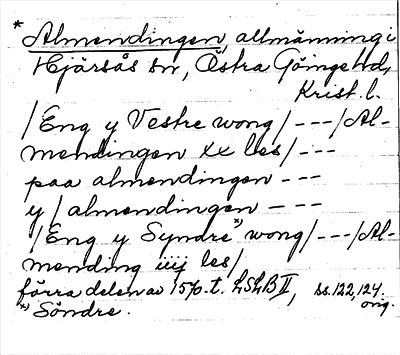 * Almendingen, allmänning i
Hjärsås sn, Östra Göinge hd,
Krist. l.
/Eng y Vestre wong/ - - - /Al-
mendingen xx les/ - - -
paa almendingen - - -
y / almendingen - - -
/Eng y Syndre *) wong/ - - - /Al-
mending iiij les/
förra delen av 1570-t. LSLB II, ss. 122, 124
orig.
*) Söndre.